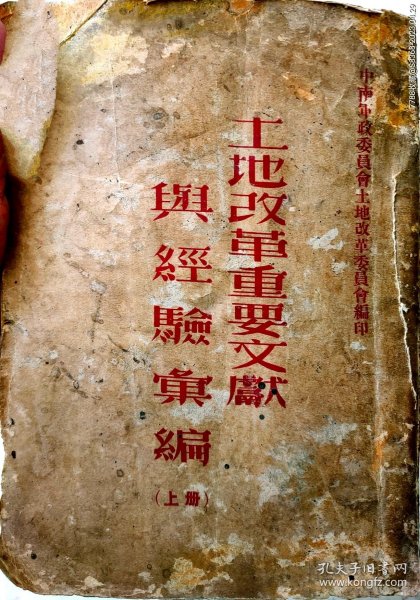 中南軍政委員會土地改革委員會編印
土地改革重要文獻
與經驗彙編
（上册）
孔夫子旧书网
www.kongfz.com